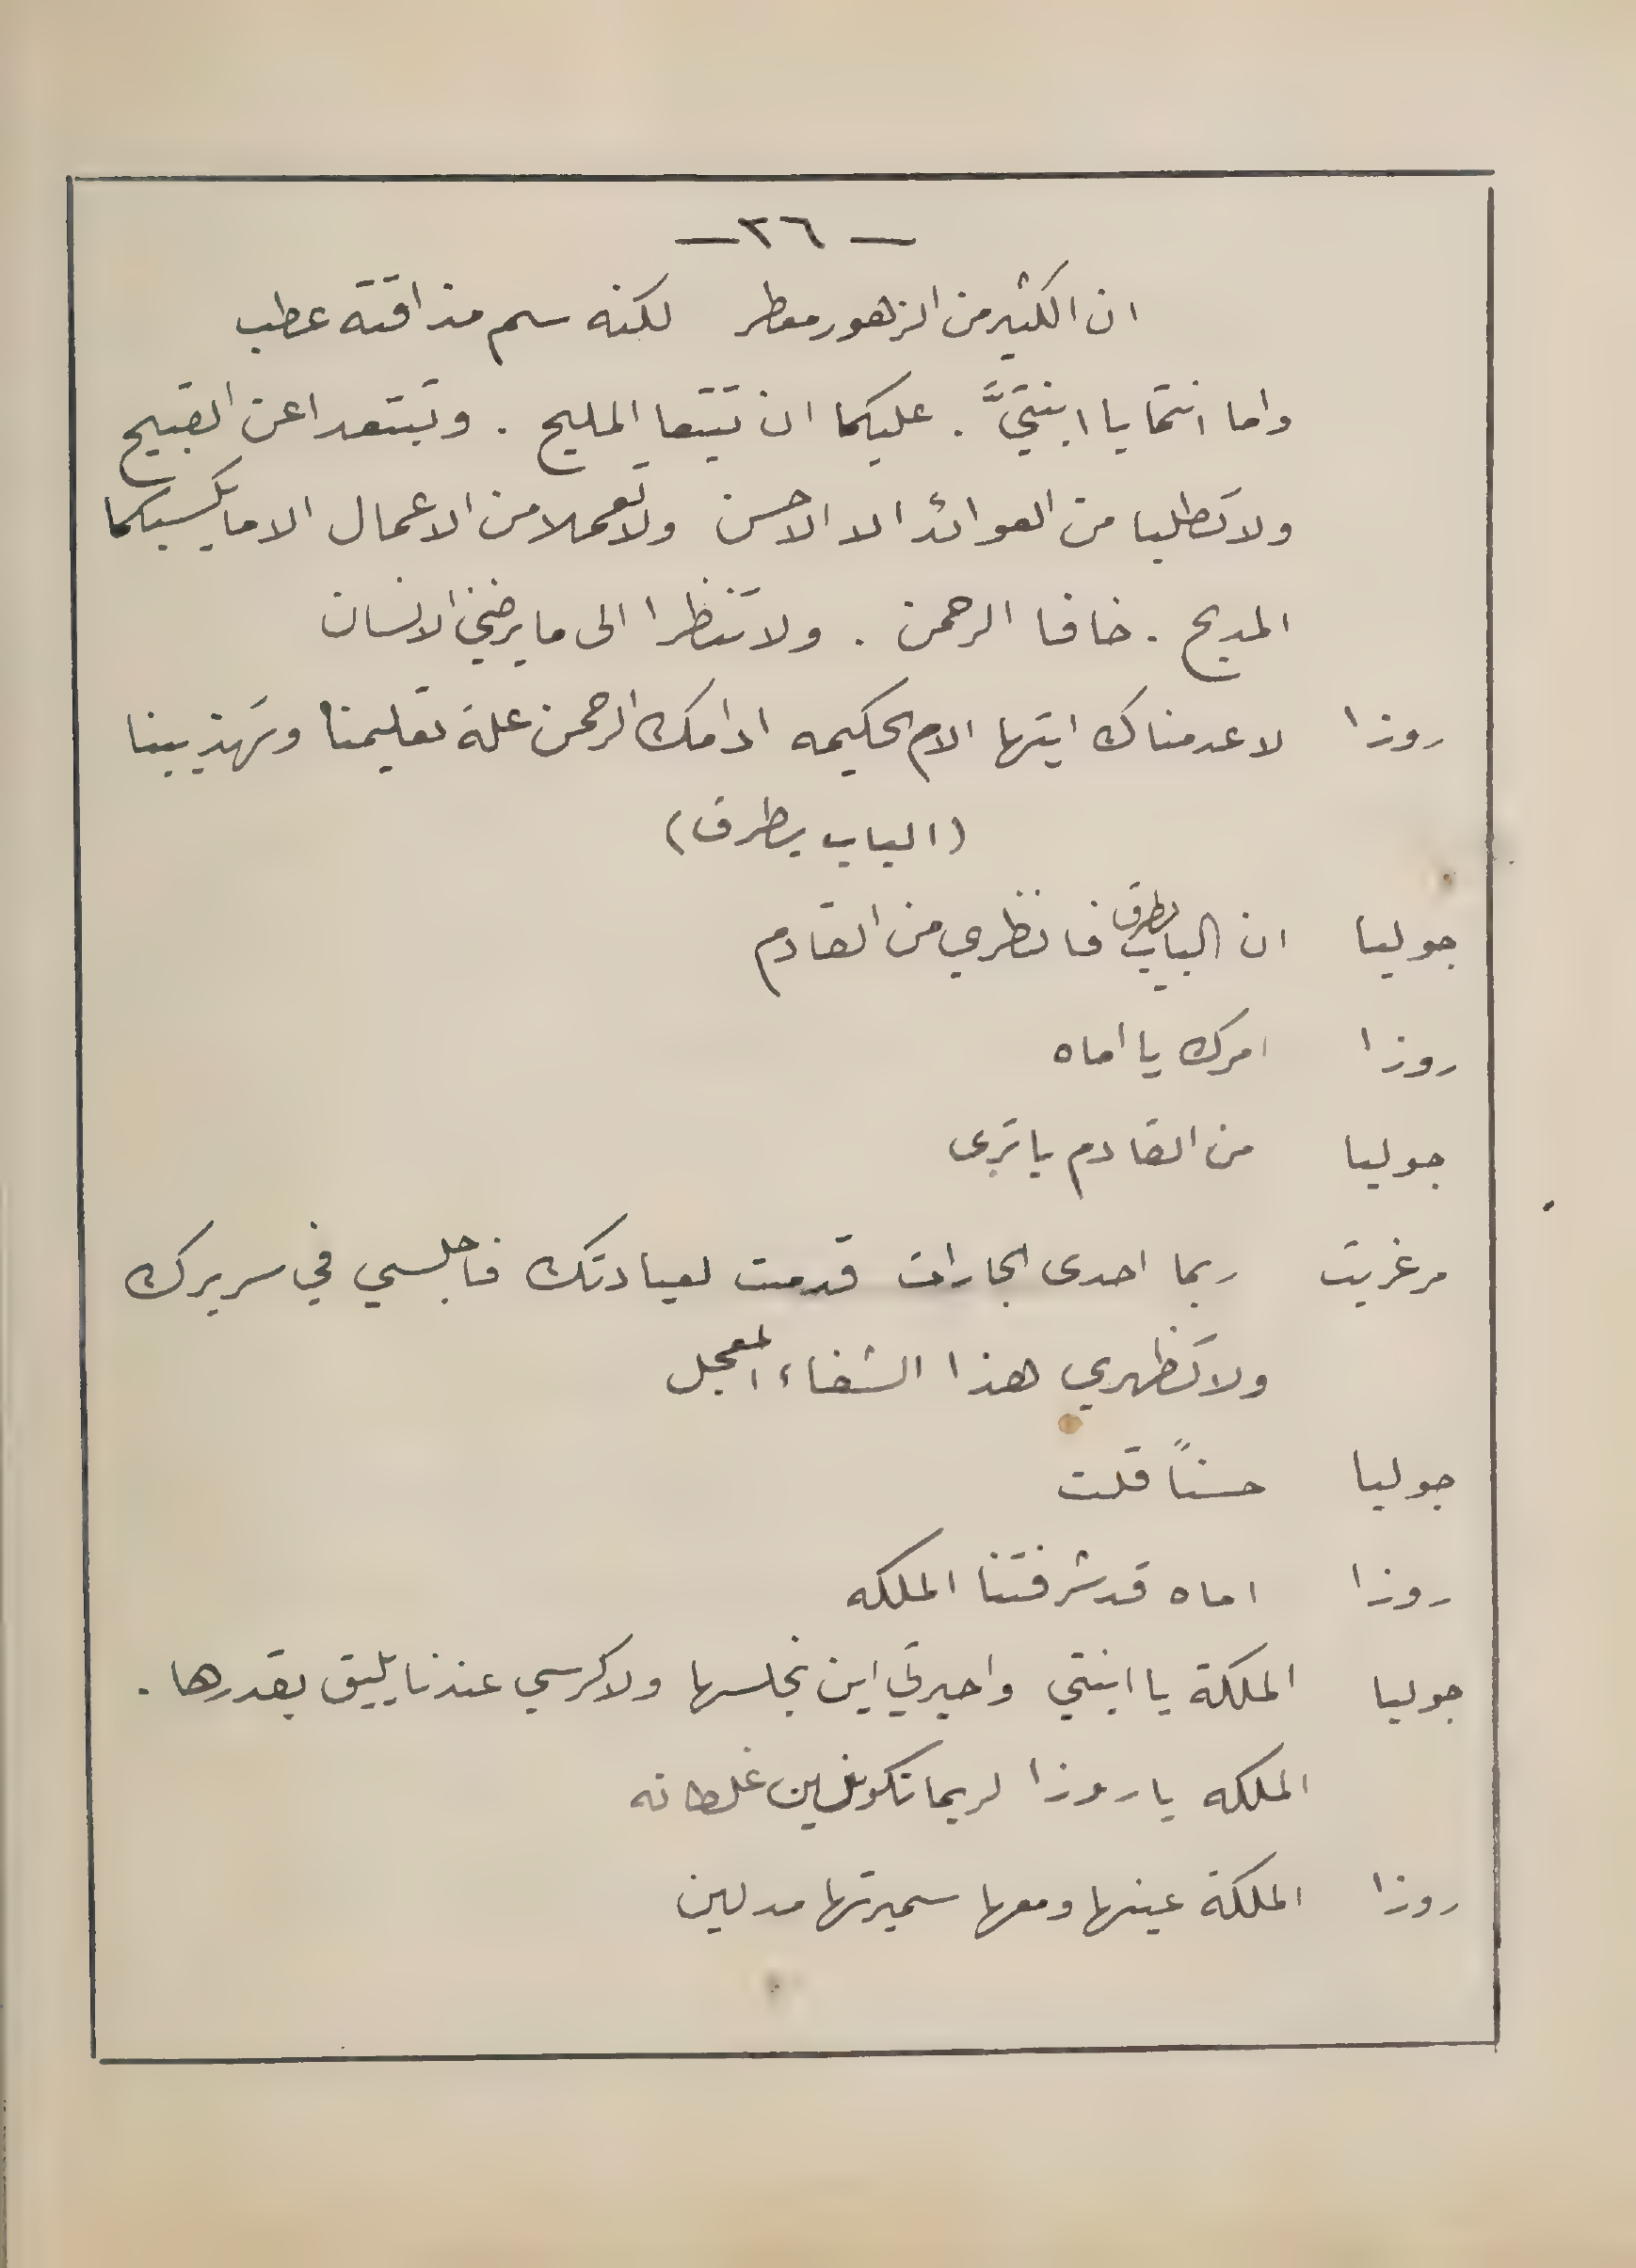 — ٢٦ —
ان الكثير من الزهور معطر لكنه سم مذاقته عطب
واما انتما يا ابنتيَّ . عليكما ان تتبعا المليح . وتبتعدا عن القبيح
ولا تطلبا من العوائد الا الاحسن ولا تعملا من الاعمال الا ما يكسبكما
المديح . خافا الرحمن . ولا تنظرا الى ما يرضي الانسان
روزا لا عدمناك ايتها الام الحكيمه ادامك الرحمن علة تعليمنا وتهذيبنا
(الباب يطرق)
جوليا ان الباب يطرق فانظري من القادم
روزا امرك يا اماه
جوليا من القادم يا ترى
مرغريت ربما احدى الجارات قدمت لعيادتك فاجلسي في سريرك
ولا تظهري هذا الشفاء المعجل
جوليا حسناً قلت
روزا اماه قد شرفتنا الملكه
جوليا الملكة يا ابنتي واحيرتي اين نجلسها ولا كرسي عندنا يليق بقدرها .
الملكه يا روزا لربما تكونين غلطانه
روزا الملكة عينها ومعها سميرتها مدلين